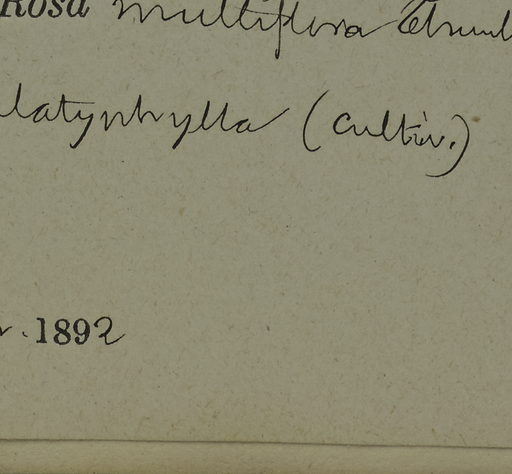 Rosa multiflora Thunb
latyphylla (Cultiv.)
. 1892